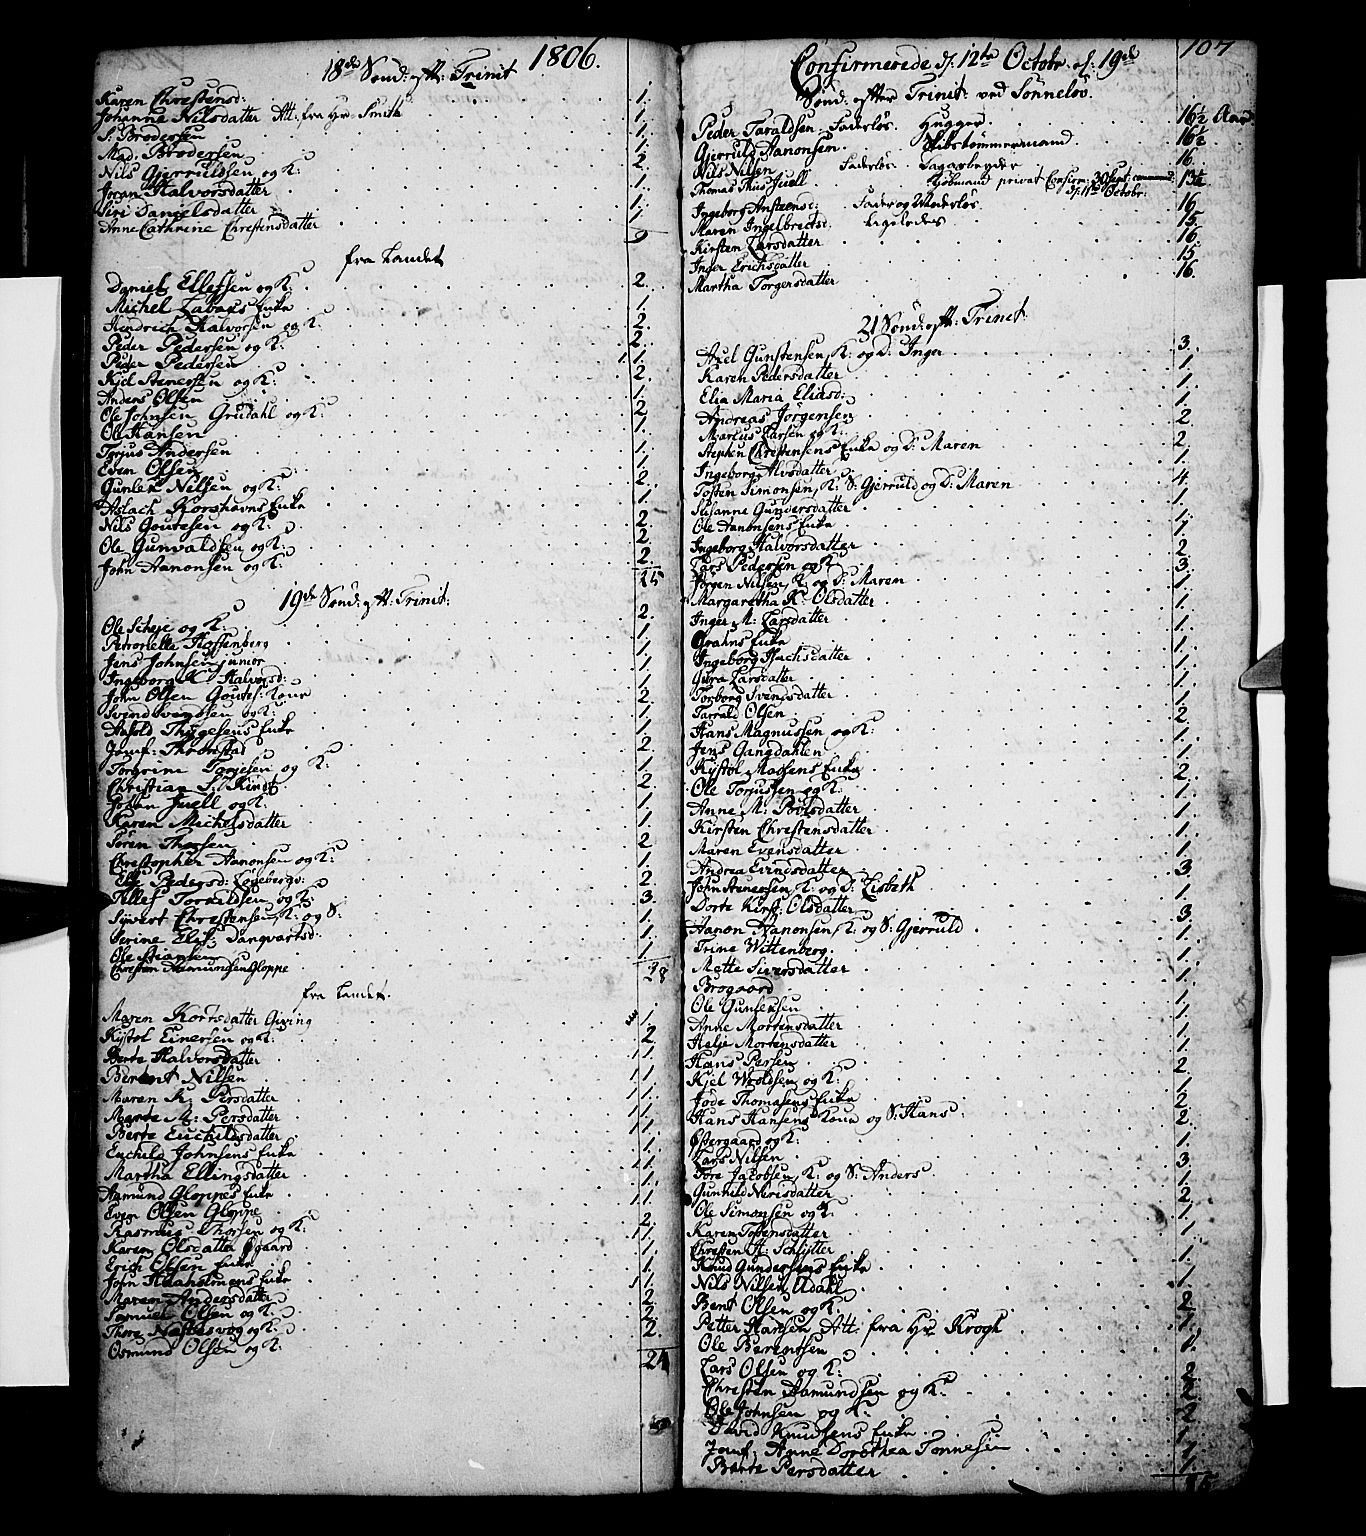 1806.
18de Sønd: eft: Trinit
Karen Chrestensd: 1.
Johanna Nilsdatter Att. fra Hr Smith 1.
S. Brodersen 1.
Mad. Brodersen 1.
Nils Gjerruldsen og K: 2.
Joran Halvorsdatter 1.
Siri Danielsdatter 1.
Anne Cathrine Chrestensdatter 1.
9
fra Landet
Daniel Ellefsen og K: 2.
Michel Zabacs Enke 1.
Hindrich Halvorsen og K: 2.
Peder Pedersen og K: 2.
Peder Pedersen 1.
Kjel Stenersen og K: 2.
Anders Olsen 1.
Ole Johnsen Grudahl og K: 2.
Ole Hansen 1.
Torjus Andersen 1.
Even Olsen 1.
Gunler Nilsen og K: 2.
Aslach Korshavns Enke 1.
Nils Goutesen og K: 2.
Ole Gunvaldsen og K: 2.
John Aanonsen og K: 2.
25
19de Sønd: eft: Trinit:
Ole Scheje og K: 2.
Petronelle Hoffenberg 1.
Jens Johnsen junior 1.
Ingeborg K Halvorsd: 1.
John Olsen Goutes: Kone 1.
Svend Svendsen og K: 2.
Thygesens Enke 1.
Jomf: Thronstad 1.
Torgrim Torjesen og K: 2.
Christian S. Kindt 1.
Johan Juell og K: 2.
Karen Michelsdatter 1.
Søren Thorsen 1.
Christopher Aanonsen og K: 2.
Else Pedersd: 1.
Tellef Torkildsen og K: 2.
Sywert Chrestensen, K: og S: 3.
Serine Elis: Danqvartsd: 1.
Ole Stiansen 1.
Chresten Aamundsen Gloppe 1.
28
fra Landet.
Maren Kortsdatter Giving 1.
Kystol Einersen og K: 2
Berte Halvorsdatter 1.
Berent Nilsen 1.
Maren K: Persdatter 1.
Marte M: Persdatter 1.
Berte Euchildsdatter 1.
Euchild Johnsens Enke 1.
Martha Ellingsdatter 1.
Aamund Gloppes Enke 1.
Even Olsen Gloppe 1.
Rasmus Thorsen og K: 2.
Karen Olsdatter 1.
Erich Olsen Enke 1.
John Enke 1.
Maren Andersdatter 1.
Samuel Olsen og K: 2.
Thore Næstesvog og K: 2.
Osmund Olsen og K: 2.
24
Confirmerede d. 12te Octobr. el. 19de
Sønd: efter Trinit: ved Sønneløv.
Peder Taraldsen Faderløs. Hugger 16½ Aar
Gjerruld Aanonsen Skibstømmermand. 16½
Nils Nilsen Faderløs Dagarbeyder 16.
Thomas Thus Juell Kjøbmand privat Confirm. 30 Sept. d. 11te Octobr. 13½
Ingeborg Anstensd: Fader og Moderløs 16.
Maren Ingelbrectsd: Ligeledes 15.
Kirsten Larsdatter 16.
Inger Erichsdatter 15.
Martha Torgersdatter 16.
21 Sønd: eft: Trinit:
Axel Gunstensen, K: og D: Inger 3.
Karen Pedersdatter 1.
Elia Maria Eliasd: 1.
Andreas Jörgensen 1.
Marcus Larsen og K: 2.
Stephen Chrestensens Enke og D: Maren 2.
Ingeborg Alvsdatter 1.
Tosten Simonsen, K: S: Gjerruld og D: Maren 4.
Susanne Gundersdatter 1.
Ole Aanonsens Enke 1.
Ingeborg Halvorsdatter 1.
Lars Pedersen og K: 2.
Jörgen Nilsen, K: og D: Maren 3.
Margaretha K: Olsdatter 1.
Inger M: Larsdatter 1.
Enke 1.
Ingeborg Isachsdatter 1.
Gura Larsdatter 1.
Torborg Svendsdatter 1.
Tarrald Olsen 1.
Hans Magnussen og K: 2.
Jens Gangdahlen 1.
Kystol Massens Enke 1.
Ole Torjussen og K: 2.
Anne M: Povlsdatter 1.
Kirsten Chrestensdatter 1.
Maren Evensdatter 1.
Andrea Evindsdatter 1.
John Stenersen, K: og D: Lisbeth 3.
Dorte Kirst: Olsdatter 1.
Aanon Aanonsen, K: og S: Gjerruld 3.
Trine Wittenberg. 1.
Mette Siversdatter 1.
Brogaard 1.
Ole Gundersen 1.
Anne Mortensdatter 1.
Helje Mortensdatter 1.
Hans Persen 1.
Kjel Wrolsen og K: 2.
Jøde Thomasens Enke 1.
Hans Hansens Kone og S: Hans 2.
Østergaard og K: 2.
Lars Nilsen 1.
Tore Jacobsen, K: og S: Anders 3.
Gunhild Nerisdatter 1.
Ole Simonsen og K: 2.
Karen Tostensdatter 1.
Chresten H: Schlytter 1.
Knud Gundersens Enke 1.
Nils Nilsen Udahl 1.
Bent Olsen og K: 2.
Petter Hansen Att: fra Hr. Krogh 1.
Ole Berentsen 1.
Lars Olsen og K: 2.
Chresten Aamundsen og K: 2.
Ole Johnsen og K: 2.
David Knudsens Enke 1.
Jomf: Anne Dorothea Tønnesen 1.
Berte Persdatter 1.